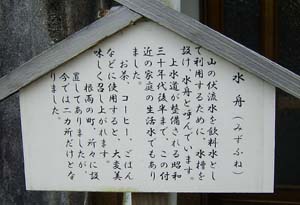 水舟（みずふね）
山の伏流水を飲料水とし
て利用するために、水槽を
設け、水舟と呼んでいます。
上水道が整備される昭和
三十年代後半まで、この付
近の家庭の生活水でもあり
ました。
お茶、コーヒー、ごはん
などに使用すると、大変美
味しく召し上がれます。
根雨の町、所々に設
置してありましたが、
今では二カ所だけとな
りました。